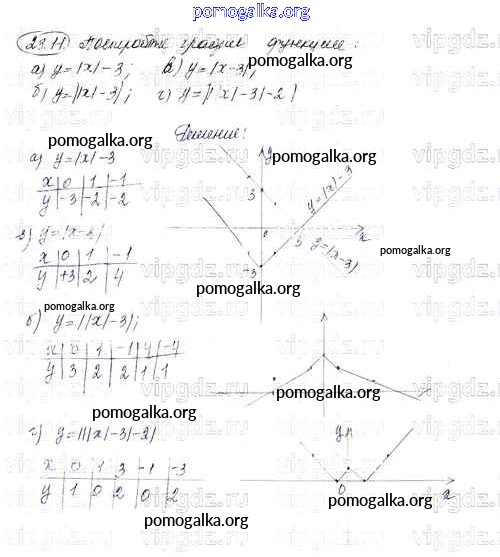 pomogalka.org
23.11. Построить графики функций:
а) y=|x|-3; в) y=|x-3|;
б) y=||x|-3|; г) y=|||x|-3|-2|
pomogalka.org
Решение:
а) y=|x|-3
x 0 1 -1
y -3 -2 -2
y
pomogalka.org
3
y=|x|-3
0
3
x
y=|x-3|
-3
в) y=|x-3|
x 0 1 -1
y +3 2 4
pomogalka.org
pomogalka.org
pomogalka.org
pomogalka.org
б) y=||x|-3|;
x 0 1 -1 4 -4
y 3 2 2 1 1
pomogalka.org
pomogalka.org
г) y=|||x|-3|-2|
x 0 1 3 -1 -3
y 1 0 2 0 2
y
0
x
pomogalka.org
pomogalka.org
vipgdz.ru